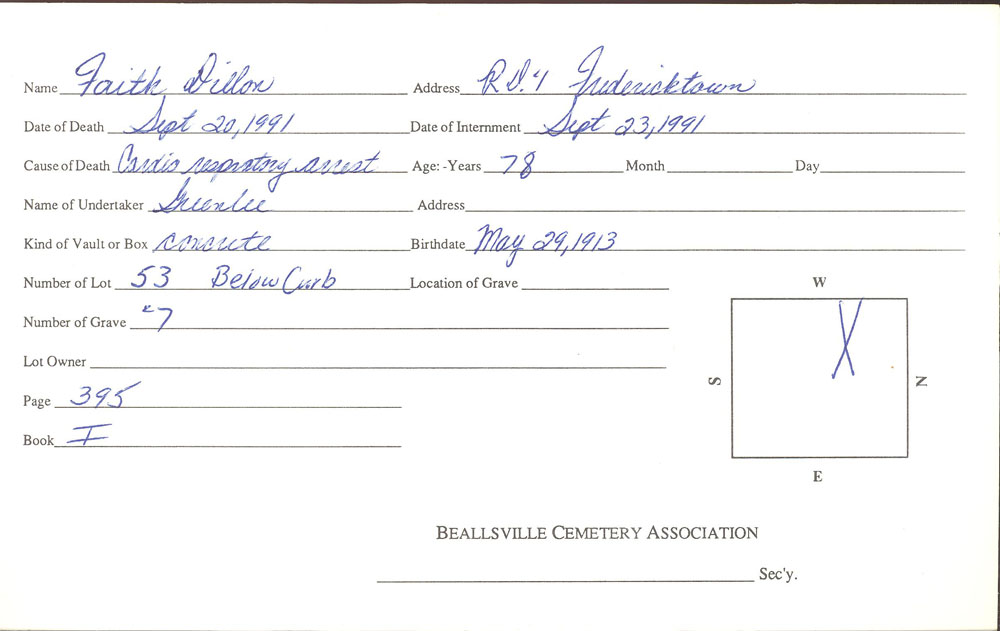 Name Faith Dillon Address R.D. 4 Fredericktown
Date of Death Sept 20, 1991 Date of Internment Sept 23, 1991
Cause of Death Cardio respiratory arrest Age: -Years 78 Month Day
Name of Undertaker Greenlee Address
Kind of Vault or Box concrete Birthdate May 29, 1913
Number of Lot 53 Below Curb Location of Grave
Number of Grave #7
Lot Owner
Page 395
Book I
W
S
N
E
BEALLSVILLE CEMETERY ASSOCIATION
Sec'y.